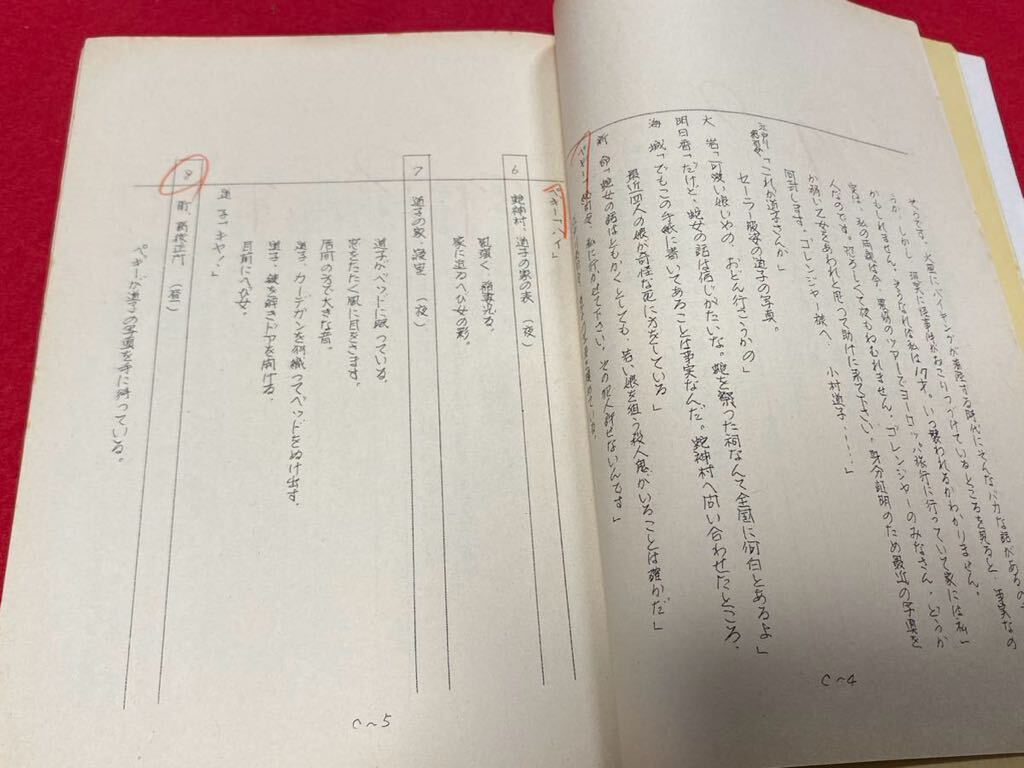 そうです。火星にバイキングが着陸する時代にそんなバカな話があるの
うか。しかし、現実に怪事件がおこりつづけているところを見ると、事実なの
かもしれません。そうなれば私は17才。いつ襲われるかわかりません。
実は、私の両親は今、農協のツアーでヨーロッパ旅行に行っていて家には私一
人なのです。恐ろしくて夜もねむれません。ゴレンジャーのみなさん、どうか
か弱い乙女をあわれと思って助けに来て下さい。身分証明のため最近の写真を
同封します。ゴレンジャー様へ、　小村道子・・・・」
「これが道子さんか」
セーラー服姿の道子の写真。
大　岩「可愛い娘いやの、おどん行こうかの」
明日香「だけど、蛇女の話は信じがたいな。蛇を祭った祠なんて全国に何百とあるよ」
海　城「でもこの手紙に書いてあることは事実なんだ。蛇神村へ問い合わせたところ、
最近四人の娘が奇怪な死に方をしている」
新　命「蛇女の話はともかくとしても、若い娘を狙う殺人鬼がいることは確かだ」
ペギー「 私に行かせて下さい。 犯人許せないんです」
C〜4
ペギー「ハイ」
6　蛇神村、道子の家の表（夜）
風強く、稲妻光る。
家に迫るへび女の影。
7　道子の家・寝室　（夜）
道子がベッドに眠っている。
窓をたたく風に目をさます。
居間の方で大きな音。
道子、カーデガンを羽織ってベッドをぬけ出す。
道子、鍵を解きドアを開ける。
目前にへび女。
道　子「キャ！」
8　 （昼）
ペギーが道子の写真を手に持っている。
C〜5